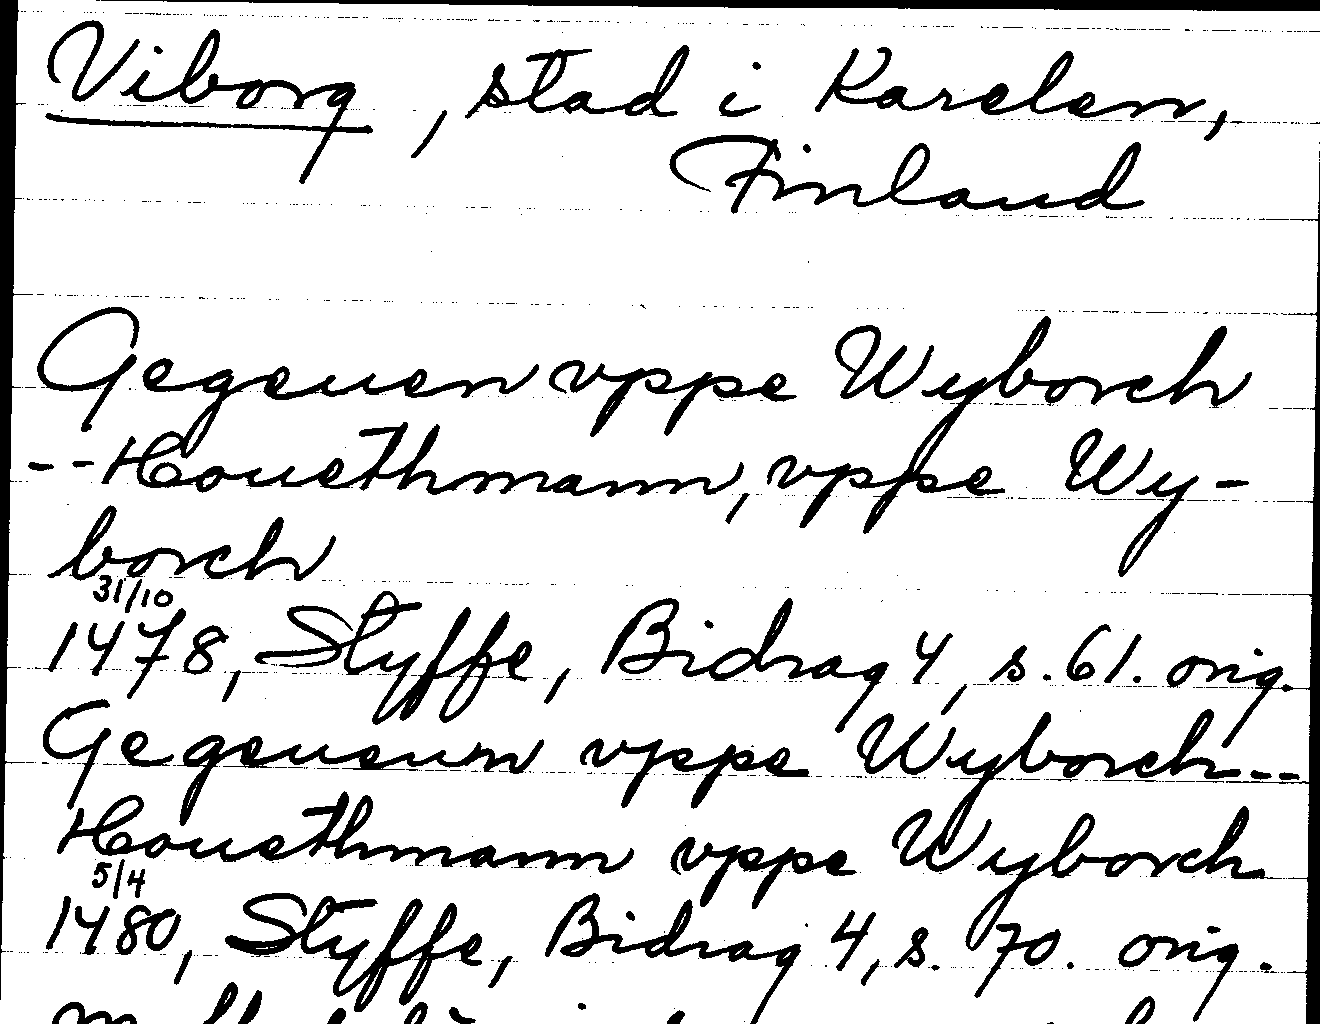 Viborg, stad i Karelen,
Finland
Gegeuen vppe Wyborch
-- Houethmann, vppe Wy-
borch
31/10
1478, Styffe, Bidrag 4, s. 61. orig.
Gegeueum vppe Wyborch--
Houethmann vppe Wyborch.
5/4
1480, Styffe, Bidrag 4, s. 70. orig.